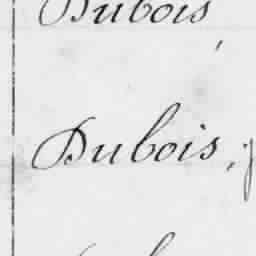 Dubois
Dubois,